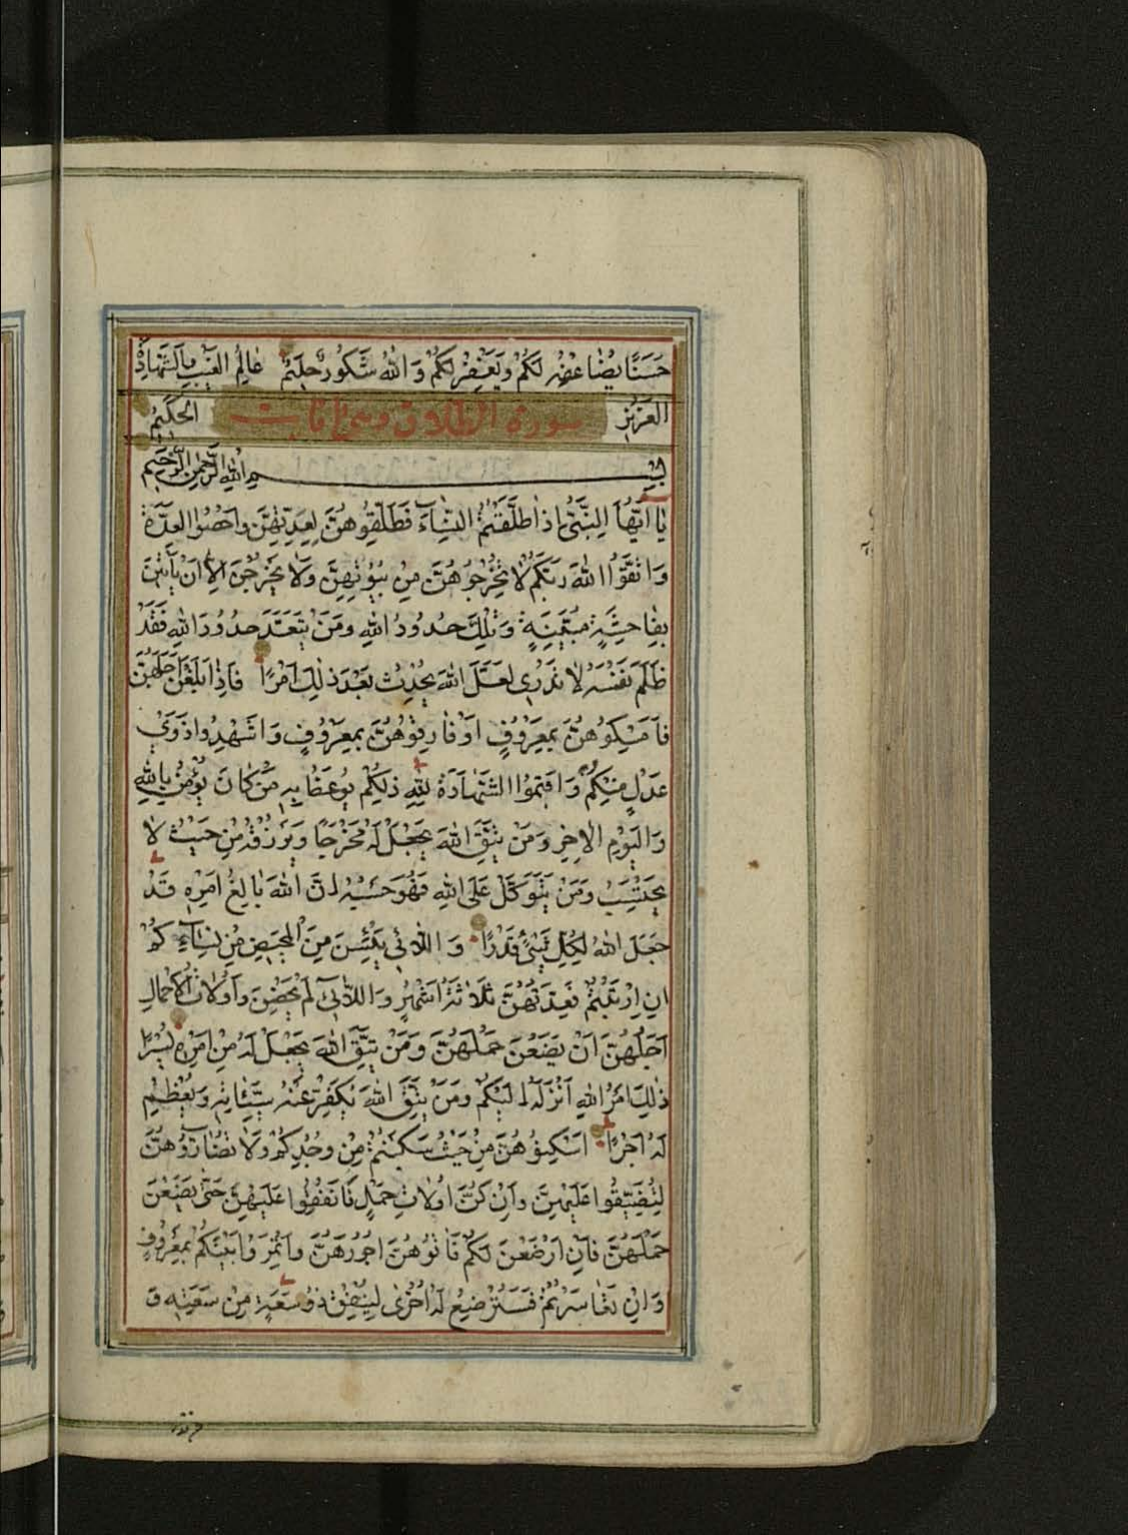 حَسَنًا يُضَاعِفْهُ لَكُمْ وَيَغْفِرْ لَكُمْ وَاللهُ شَكُورٌ حَلِيمٌ عَالِمُ الْغَيْبِ وَالشَّهَادَةِ
الْعَزِيزُ سورة الطلاق الْحَكِيمُ
بِسْمِ اللهِ الرَّحْمٰنِ الرَّحِيمِ
يَا أَيُّهَا النَّبِيُّ إِذَا طَلَّقْتُمُ النِّسَآءَ فَطَلِّقُوهُنَّ لِعِدَّتِهِنَّ وَأَحْصُوا الْعِدَّةَ
وَاتَّقُوا اللهَ رَبَّكُمْ لَا تُخْرِجُوهُنَّ مِنْ بُيُوتِهِنَّ وَلَا يَخْرُجْنَ إِلَّا أَنْ يَأْتِينَ
بِفَاحِشَةٍ مُبَيِّنَةٍ وَتِلْكَ حُدُودُ اللهِ وَمَنْ يَتَعَدَّ حُدُودَ اللهِ فَقَدْ
ظَلَمَ نَفْسَهُ لَا تَدْرِي لَعَلَّ اللهَ يُحْدِثُ بَعْدَ ذٰلِكَ أَمْرًا فَإِذَا بَلَغْنَ أَجَلَهُنَّ
فَأَمْسِكُوهُنَّ بِمَعْرُوفٍ أَوْ فَارِقُوهُنَّ بِمَعْرُوفٍ وَأَشْهِدُوا ذَوَيْ
عَدْلٍ مِنْكُمْ وَأَقِيمُوا الشَّهَادَةَ لِلهِ ذٰلِكُمْ يُوعَظُ بِهِ مَنْ كَانَ يُؤْمِنُ بِاللهِ
وَالْيَوْمِ الْاٰخِرِ وَمَنْ يَتَّقِ اللهَ يَجْعَلْ لَهُ مَخْرَجًا وَيَرْزُقْهُ مِنْ حَيْثُ لَا
يَحْتَسِبُ وَمَنْ يَتَوَكَّلْ عَلَى اللهِ فَهُوَ حَسْبُهُ إِنَّ اللهَ بَالِغُ أَمْرِهِ قَدْ
جَعَلَ اللهُ لِكُلِّ شَيْءٍ قَدْرًا وَاللَّائِي يَئِسْنَ مِنَ الْمَحِيضِ مِنْ نِسَآءِكُمْ
إِنِ ارْتَبْتُمْ فَعِدَّتُهُنَّ ثَلَاثَةُ أَشْهُرٍ وَاللَّائِي لَمْ يَحِضْنَ وَأُولَاتُ الْأَحْمَالِ
أَجَلُهُنَّ أَنْ يَضَعْنَ حَمْلَهُنَّ وَمَنْ يَتَّقِ اللهَ يَجْعَلْ لَهُ مِنْ أَمْرِهِ يُسْرًا
ذٰلِكَ أَمْرُ اللهِ أَنْزَلَهُ إِلَيْكُمْ وَمَنْ يَتَّقِ اللهَ يُكَفِّرْ عَنْهُ سَيِّئَاتِهِ وَيُعْظِمْ
لَهُ أَجْرًا أَسْكِنُوهُنَّ مِنْ حَيْثُ سَكَنْتُمْ مِنْ وُجْدِكُمْ وَلَا تُضَآرُّوهُنَّ
لِتُضَيِّقُوا عَلَيْهِنَّ وَإِنْ كُنَّ أُولَاتِ حَمْلٍ فَأَنْفِقُوا عَلَيْهِنَّ حَتّٰى يَضَعْنَ
حَمْلَهُنَّ فَإِنْ أَرْضَعْنَ لَكُمْ فَاٰتُوهُنَّ أُجُورَهُنَّ وَأْتَمِرُوا بَيْنَكُمْ بِمَعْرُوفٍ
وَإِنْ تَعَاسَرْتُمْ فَسَتُرْضِعُ لَهُ أُخْرٰى لِيُنْفِقْ ذُو سَعَةٍ مِنْ سَعَتِهِ وَ